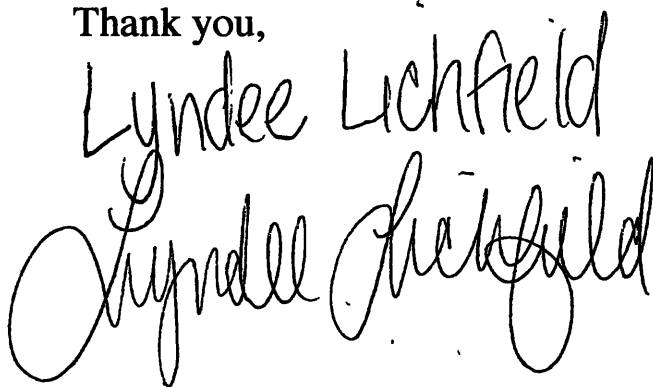 Thank you,
Lyndee Lichfield
Lyndee Lichfield